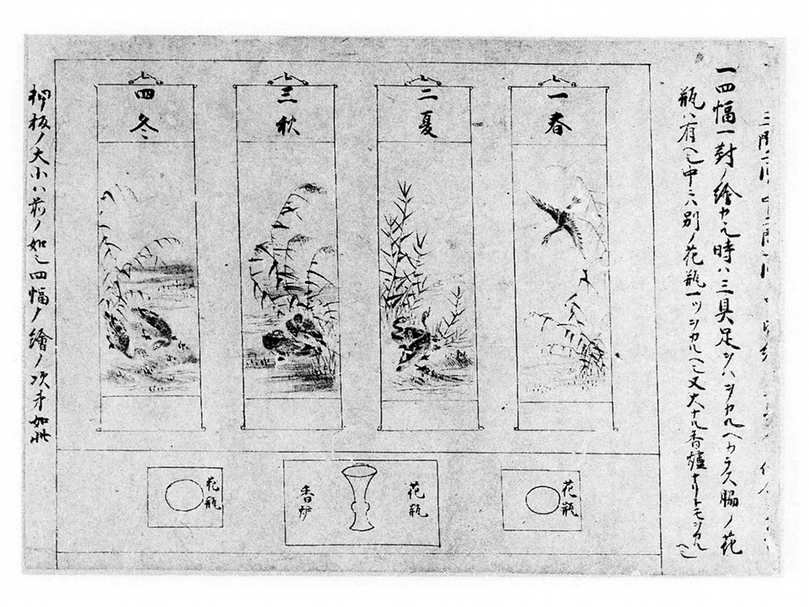 一四幅一對ノ繪カヽル時ハ三具足ヲハヲカルヘカラス脇ノ花
瓶ハ有ヘシ中ニハ別ノ花瓶一ツヲカルヘシ又大ナル香爐ナリトモヲカルヘシ
一春
二夏
三秋
四冬
花瓶
花瓶
香炉
花瓶
押板ノ大小ハ前ノ如シ四幅ノ繪ノ次第如此